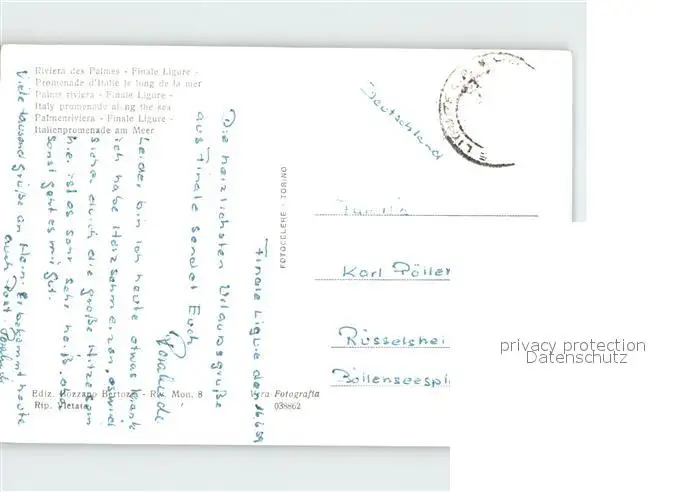 Riviera des Palmes - Finale Ligure -
Promenade d'Italie le long de la mer
Palms riviera - Finale Ligure -
Italy promenade along the sea
Palmenriviera - Finale Ligure -
Italienpromenade am Meer
Finale Ligure den 16.6.59
Die herzlichsten Urlaubsgrüße
aus Finale sendet Euch
Leider bin ich heute etwas krank
ich habe Herzschmerzen, es wird
sicher durch die große Hitze sein
hier ist es sehr sehr heiß. aber
sonst geht es mir gut.
Viele tausend Grüße an Heini. Er bekommt heute
auch Post.
FOTOCELERE - TORINO
Deutschland
Familie
Karl Pöller
Rüsselshei
Böllenseespl
privacy protection
Datenschutz
Ediz. Bozzano Bertozzi - Riv. Mon. 8
Rip. Vietata
Vera Fotografia
038862